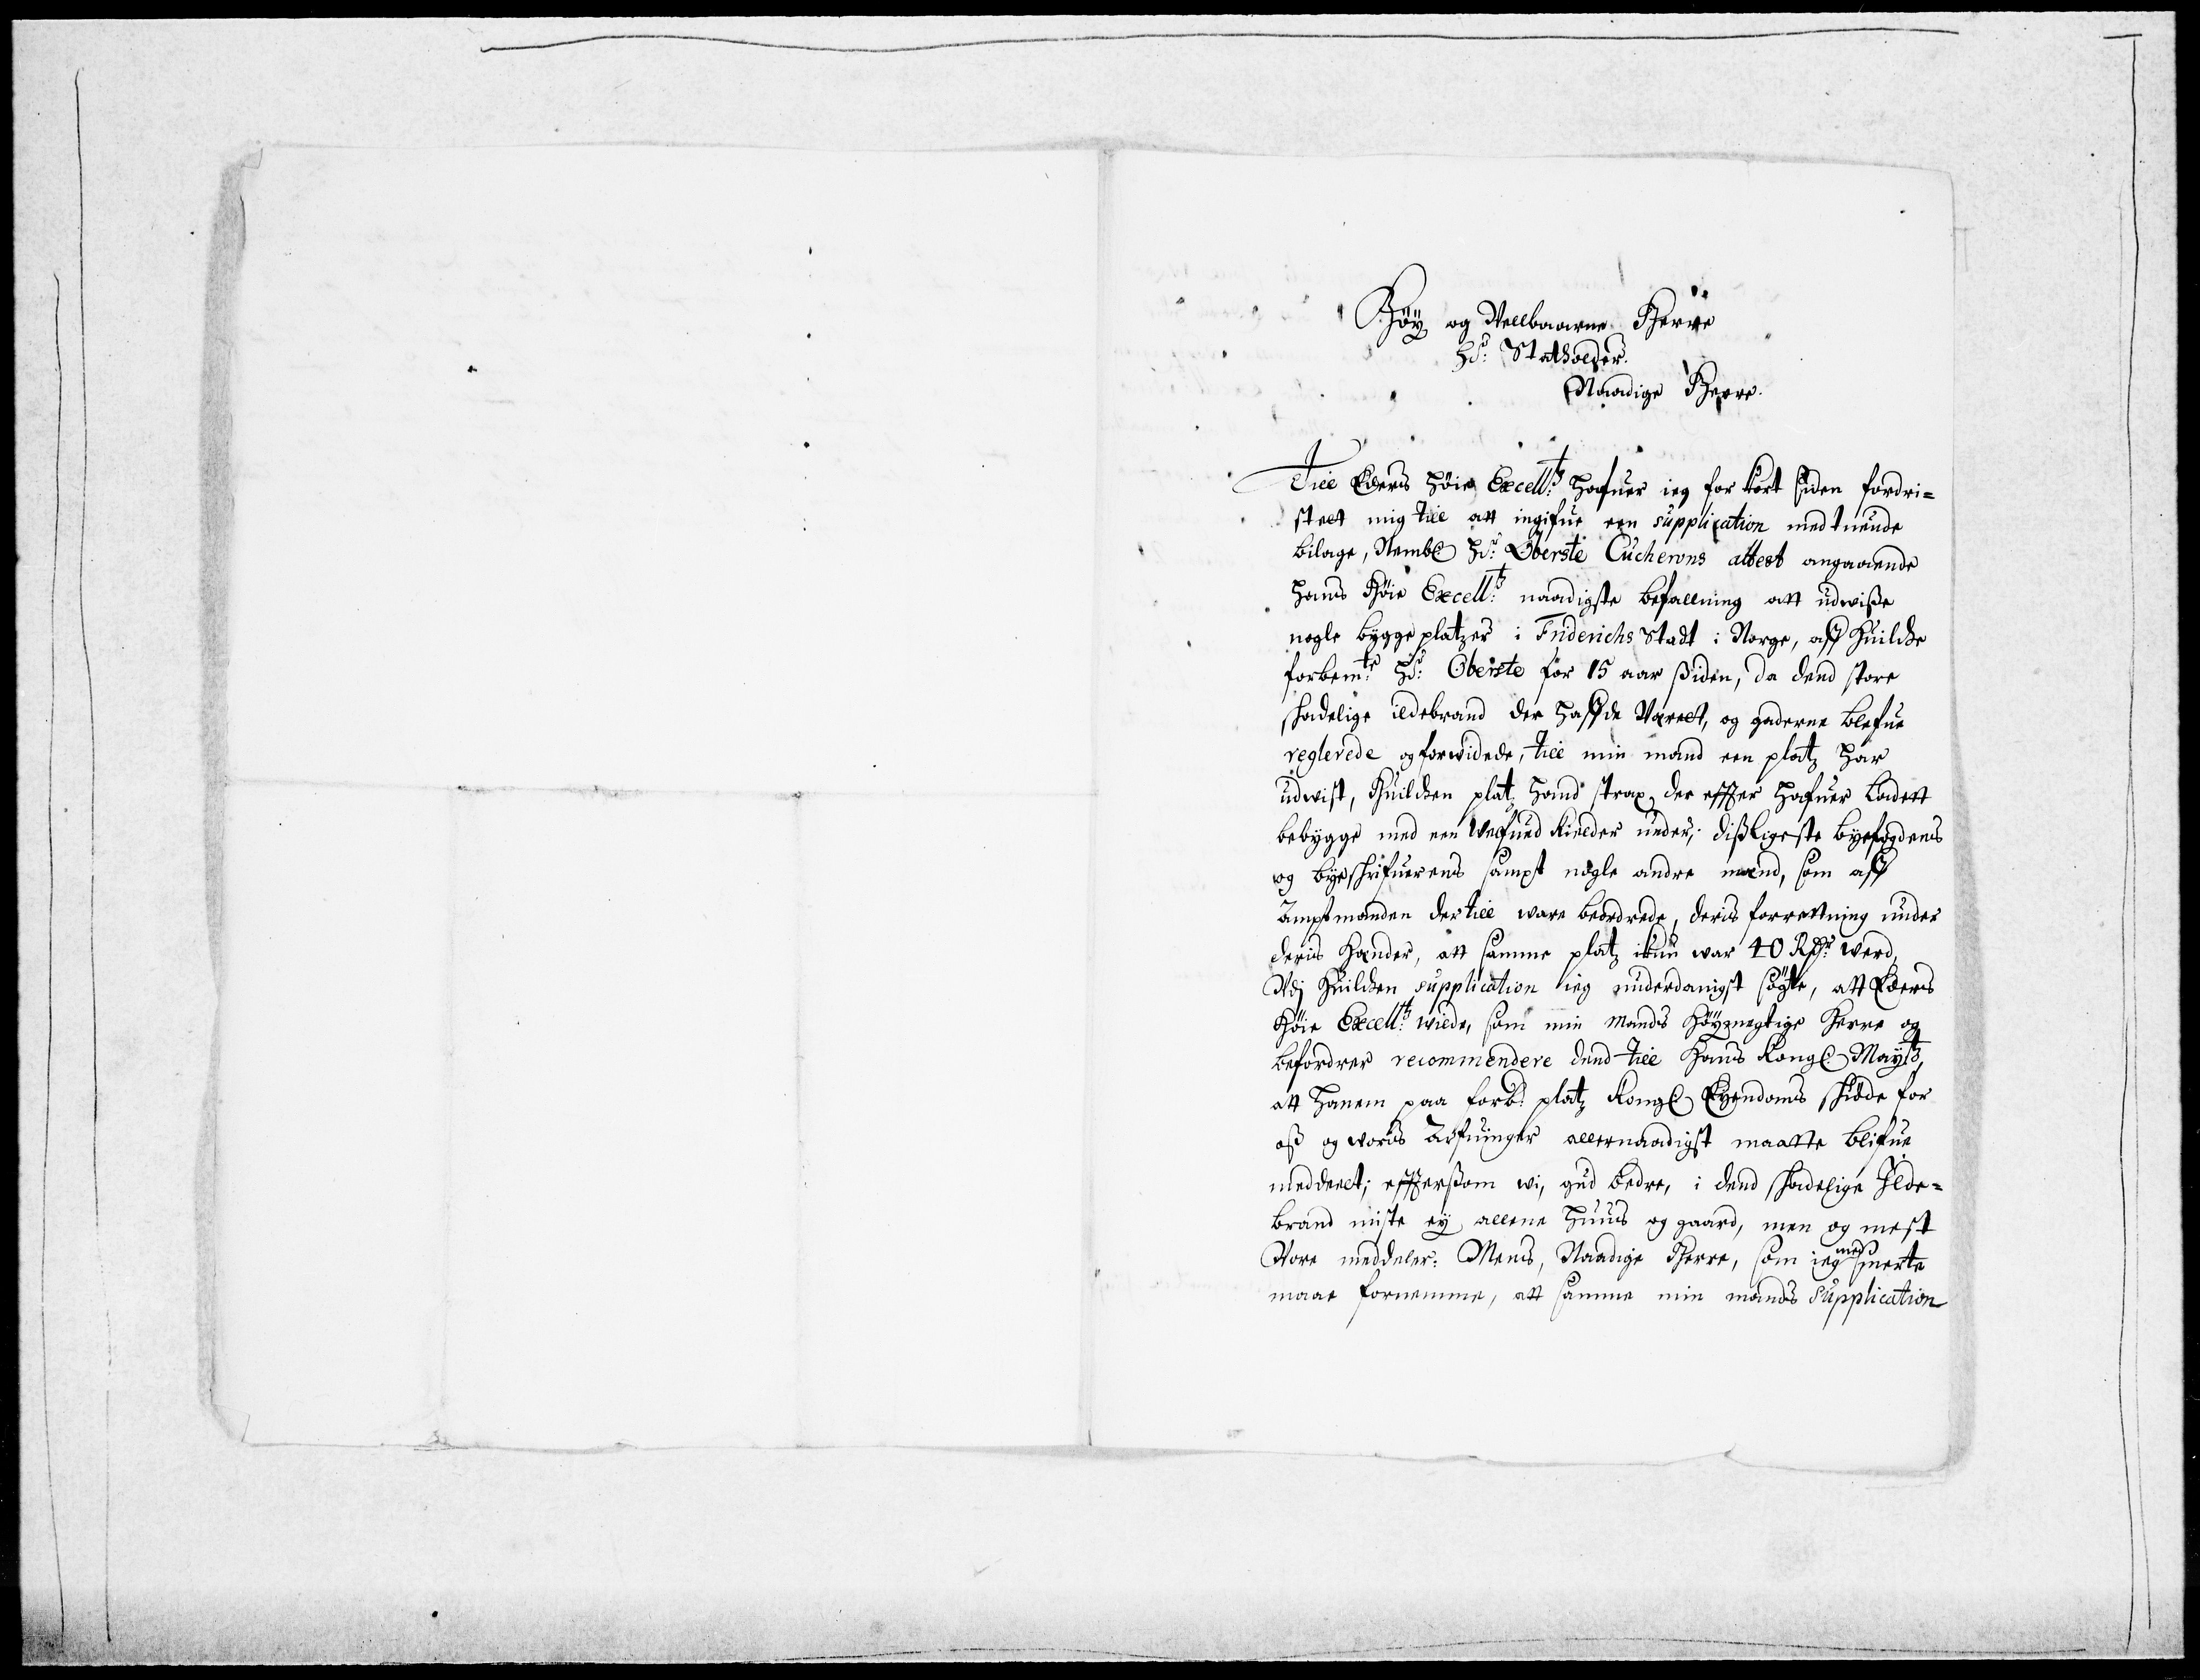 Höy og Vellbaarne Herre
Hr: Statholder.
Naadige Herre.
Till Eders Höie Excelltz: hafuer ieg for kort siden fordri-
stett mig till att ingifue een supplication med tuende
bilage, Nembl Hr: Oberste Cucherons attest angaaende
Hans Höie Excelltz: naadigste befallning att udwiße
nogle byggeplatzer i Friderichs Stadt i Norge, aff huilcke
forbemte Hr: Oberste for 15 aar ßiden, da dend store
skadelige ildebrand der haffde Værett, og gaderne blefue
reglerede og forwidede, till min mand een platz har
udwist, Huilcken platz hand strax der effter hafuer ladett
bebygge med een Welfued Kielder under; dißligeste byefogdens
og byeskrifuerens sampt nogle andre mænd, som aff
Amptmanden dertill ware beordrede, deris forrettning under
deris Hænder, att samme platz ikun war 40 Rdr: werd,
Vdj Huilcken supplication ieg underdanigst sögte, att Eders
Höie Excelltz: wilde, som min Mands Höymegtige Herre og
befordrer recommendere dend till Hans Kongl Maytz,
att Hanem paa forb: platz Kongl Eyendoms skiöde for
oß og woris Arfuinger allernaadigst maatte blifue
meddeelt; effterßom wi, gud bedre, i dend skadelige Ilde-
brand miste ey allene Huus og gaard, men og mest
Vore meddeler: Mens, Naadige Herre, som ieg med smerte
maae fornemme, att samme min mands supplication